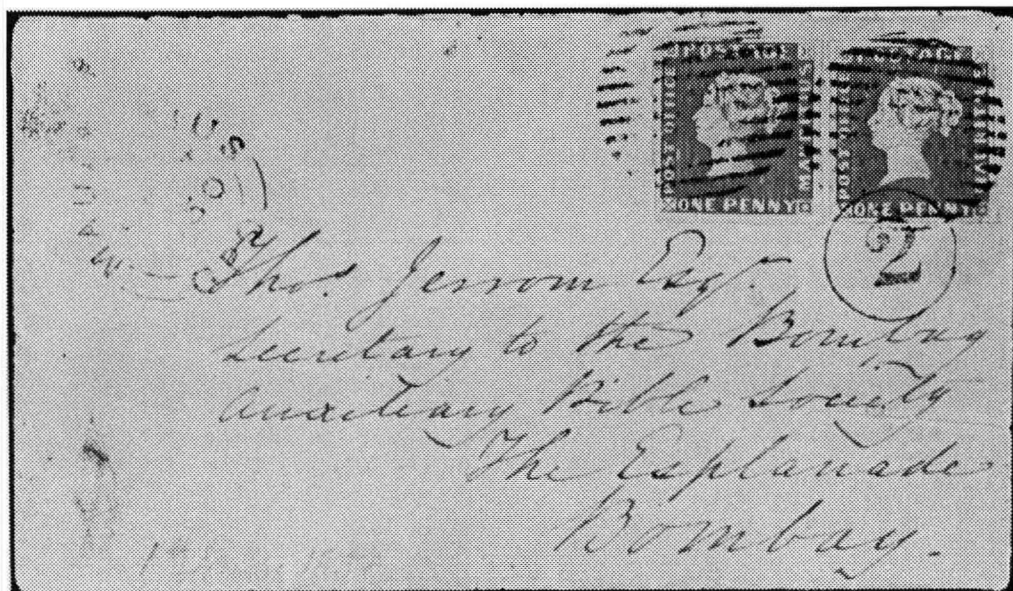 POSTAGE
POST OFFICE
MAURITIUS
ONE PENNY
POSTAGE
POST OFFICE
ONE PENNY
2
Thos. Jerrom Esqr.
Secretary to the Bombay
Auxiliary Bible Society
The Esplanade
Bombay.